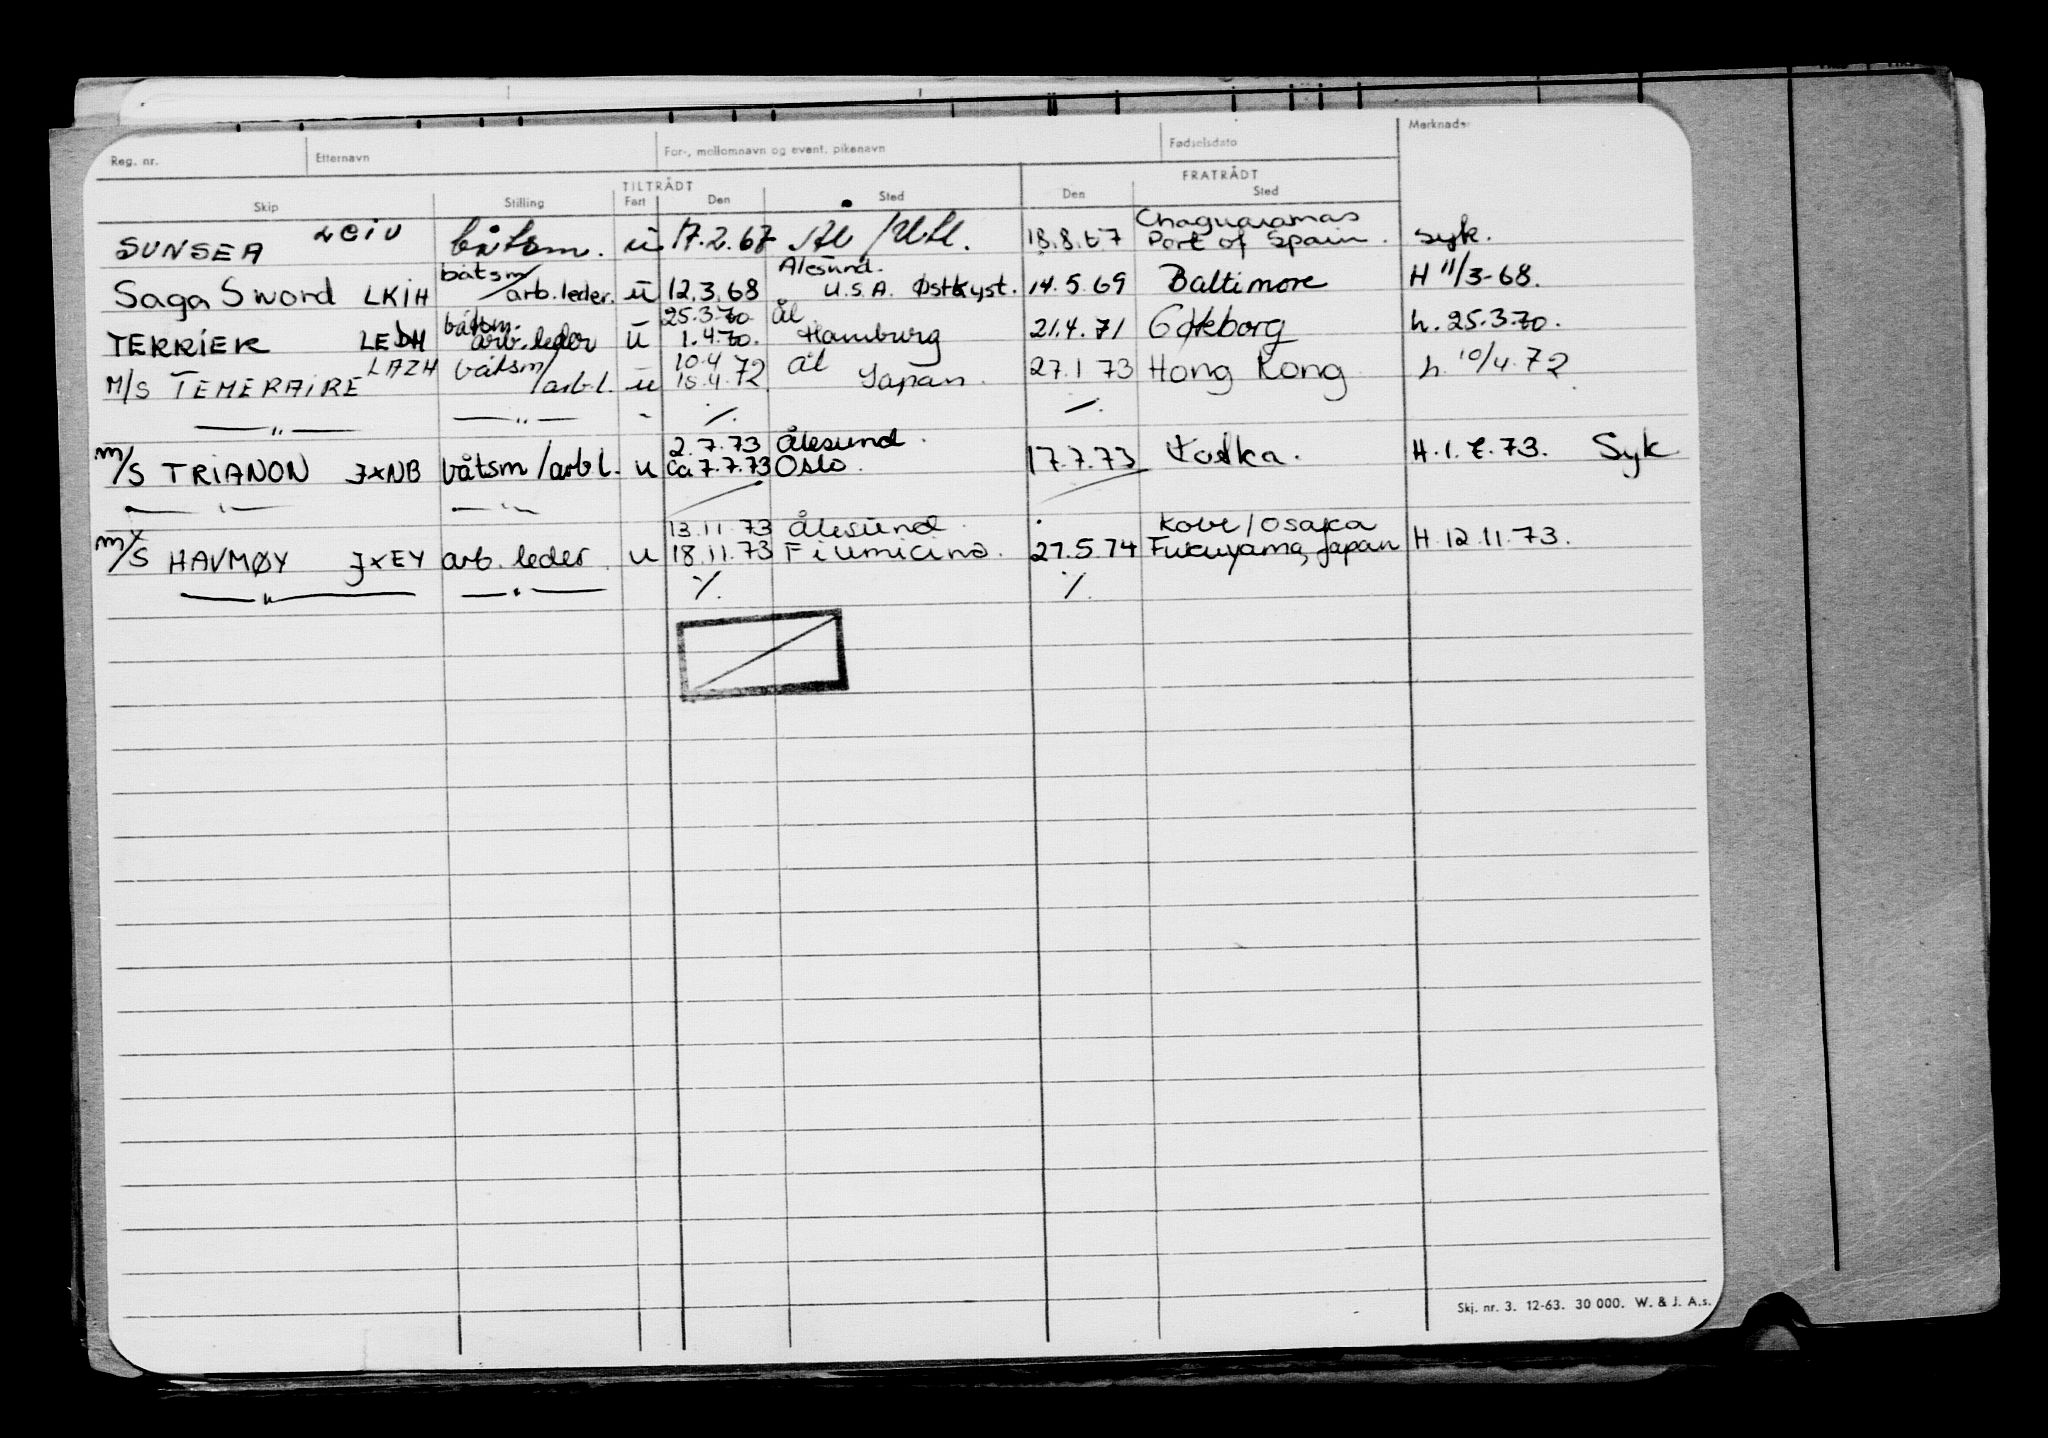 Reg. nr. Etternavn For-, mellomnavn og event. pikenavn Fødselsdato Merknader
TILTRÅDT FRATRÅDT
Skip Stilling Fart Den Sted Den Sted
SUNSEA LCIU båtsm. u 17.2.67 Ål / Utl. 18.8.67 Chaguaramas Port of Spain. syk.
Saga Sword LKIH båtsm/arb.leder. u 12.3.68 Ålesund. U.S.A. Østkyst. 14.5.69 Baltimore H 11/3-68.
25.3.70 Ål
TERRIER LEDH båtsm. arb.leder u 1.4.70. Hamburg 21.4.71 Gøteborg h. 25.3.70.
10.4 Ål
M/S TEMERAIRE LAZH båtsm/arb.l. u 18.4.72 Japan. 27.1 73 Hong Kong h. 10/4.72
— " — — " — - ·/. ·/.
2.7.73 Ålesund.
m/S TRIANON JXNB båtsm/arb.l. u ca 7.7.73 Oslo. 17.7.73 H. 1.7.73. Syk
— " — — " —
13.11.73 Ålesund Kobe/Osaka
m/S HAVMØY JXEY arb. leder u 18.11.73 Fiumicino. 27.5.74 Fukuyama, Japan H. 12.11.73.
— " — — " — ·/. ·/.
Skj. nr. 3. 12-63. 30 000. W. & J. A.s.